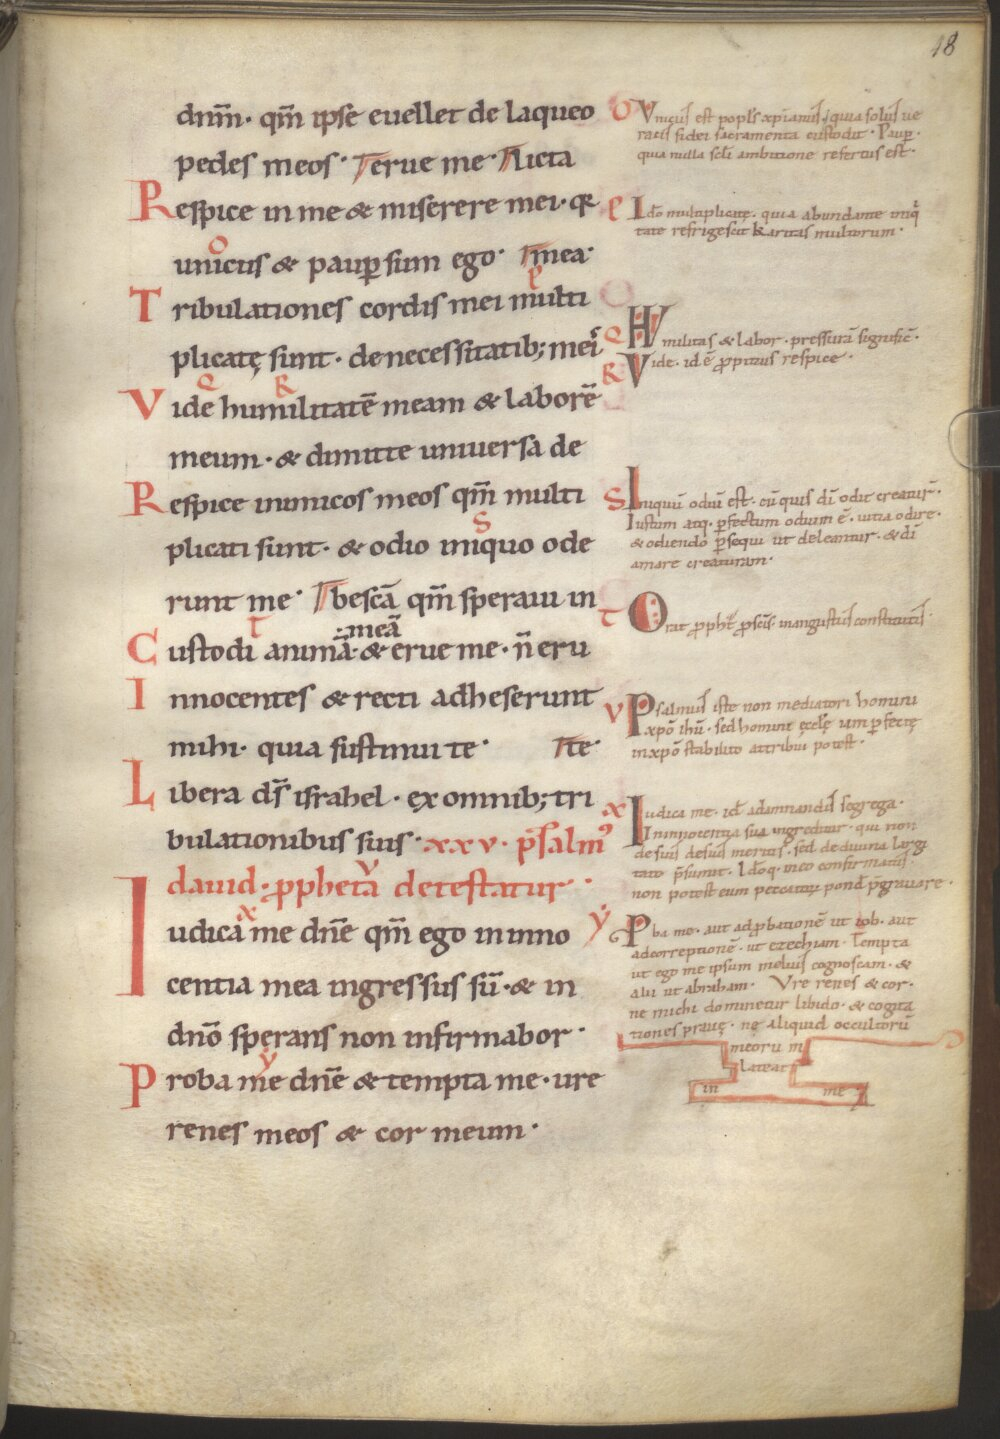 18
dnm̄· qm̄ ipse euellet de laqueo
pedes meos· erue me· licta
Respice in me & miserere mei· q̄
unicus & paup sum ego· mea·
Tribulationes cordis mei multi
plicatę sunt· de necessitatib; mei
Vide humilitatē meam & laborē
meum· & dimitte uniuersa de
Respice inimicos meos qm̄ multi
plicati sunt· & odio iniquo ode
runt me· bescā qm̄ speraui in
meā
Custodi animā· & erue me· n̄ eru
Innocentes & recti adheserunt
mihi· quia sustinui te· te·
Libera ds̄ israhel· ex omnib; tri
bulationibus suis· xxv· psalm᾽
dauid· ppheta detestatur·
Iudica me dnē qm̄ ego in inno
centia mea ingressus sū· & in
dnō sperans non infirmabor·
Proba me dnē & tempta me· ure
renes meos & cor meum·
o Vnicus est popls xpianus, quia solus ue
racis fidei sacramenta custodit· Paup·
quia nulla scli ambitione refertus est·
p Ido multiplicatę· quia abundante iniq
tate refrigescit karitas multorum·
Q Humilitas & labor· pressurā significat̄·
R Vide· id ē propitius respice·
S Iniquū odiū est· cū quis dī odit creaturā·
Iustum atq· pfectum odium ē· uitia odire·
& odiendo psequi ut deleantur· & dī
amare creaturam·
t Orat proph̄t p scīs· in angustiis constitutis·
v Psalmus iste non mediatori hominū
xpō ihū· sed homini ęclę iam pfectę
in xpō stabilito attribui potest·
x Iudica me· id adamnandis segrega·
In innocentia sua ingreditur· qui non
de suis meritis· sed de diuina largi
tate p̄sumit· Idoq· in eo confirmatus
non potest eum peccatorum pond p̄grauare·
y Pba me· aut ad pbationē ut iob· aut
ad correptionē· ut ezechiam· Tempta
ut ego me ipsum melius cognoscam· &
alii ut abraham· Vre renes & cor·
ne michi dominetur libido· & cogita
tiones prauę· ne aliquid occultorū
meoru m
lateat
in me